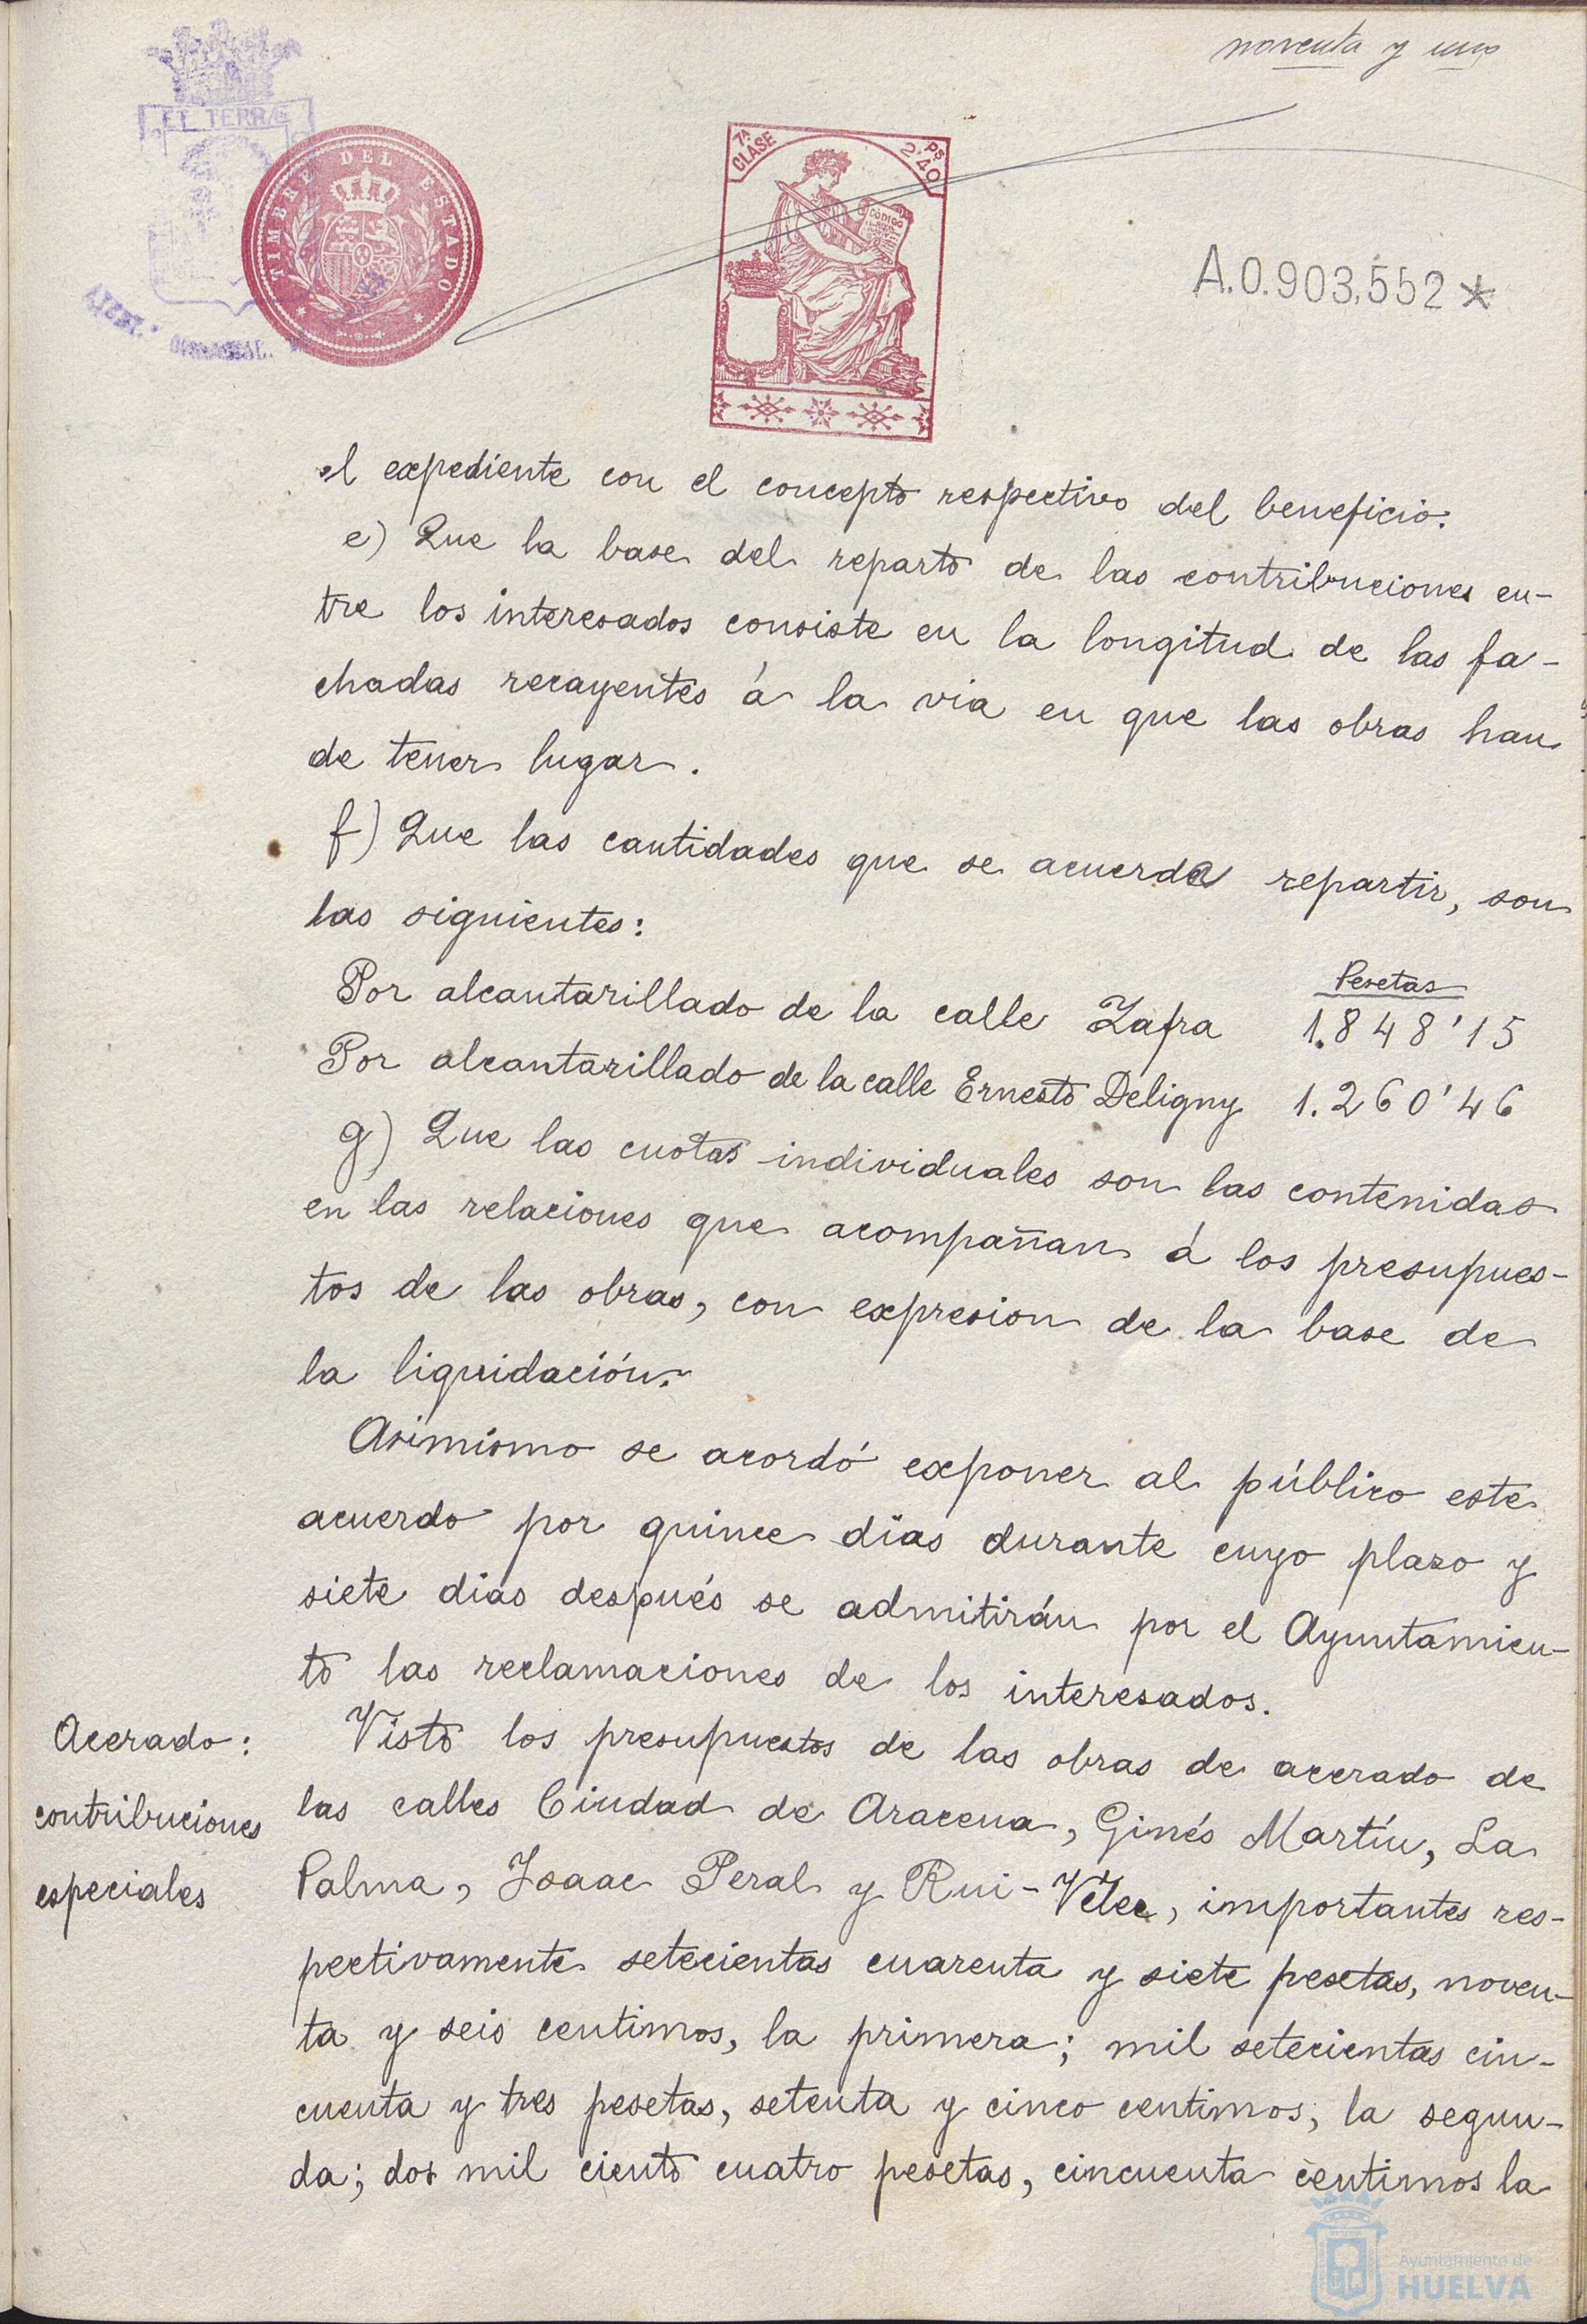 noventa y uno
TIMBRE DEL ESTADO
7ª CLASE
2'40 Ps
CÓDIGO
A.0.903,552*
el expediente con el concepto respectivo del beneficio:
e) Que la base del reparto de las contribuciones en-
tre los interesados consiste en la longitud de las fa-
chadas recayentes á la via en que las obras han
de tener lugar.
f) Que las cantidades que se acuerda repartir, son
las siguientes:
Pesetas
Por alcantarillado de la calle Zafra 1.848'15
Por alcantarillado de la calle Ernesto Deligny 1.260'46
g) Que las cuotas individuales son las contenidas
en las relaciones que acompañan á los presupues-
tos de las obras, con expresion de la base de
la liquidación.
Asimismo se acordó exponer al público este
acuerdo por quince dias durante cuyo plazo y
siete dias después se admitirán por el Ayuntamien-
to las reclamaciones de los interesados.
Acerado:
contribuciones
especiales
Visto los presupuestos de las obras de acerado de
las calles Ciudad de Aracena, Ginés Martín, La
Palma, Isaac Peral y Rui-Velez, importantes res-
pectivamente setecientas cuarenta y siete pesetas, noven-
ta y seis centimos, la primera; mil setecientas cin-
cuenta y tres pesetas, setenta y cinco centimos, la segun-
da; dos mil ciento cuatro pesetas, cincuenta centimos la
Ayuntamiento de
HUELVA